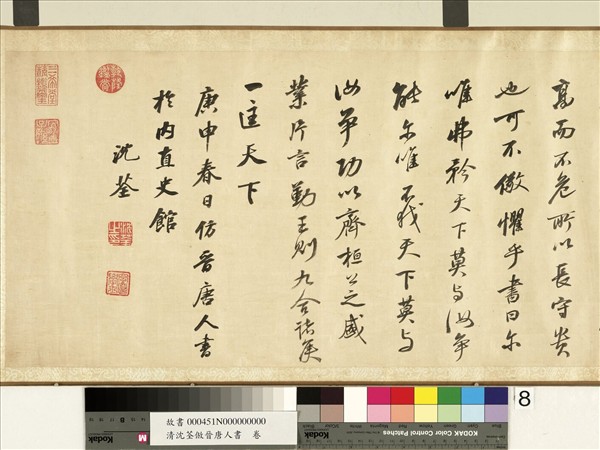 高而不危所以長守貴
也可不儆懼乎書曰尔
唯弗矜天下莫与汝争
能尔唯不伐天下莫与
汝争功以齊桓公之盛
業片言勤王則九合諸侯
一匡天下
庚申春日仿晉唐人書
於內直史館
沈荃
8
故書 000451N000000000
清沈荃倣晉唐人書 卷
Kodak
KODAK Color Control Patches